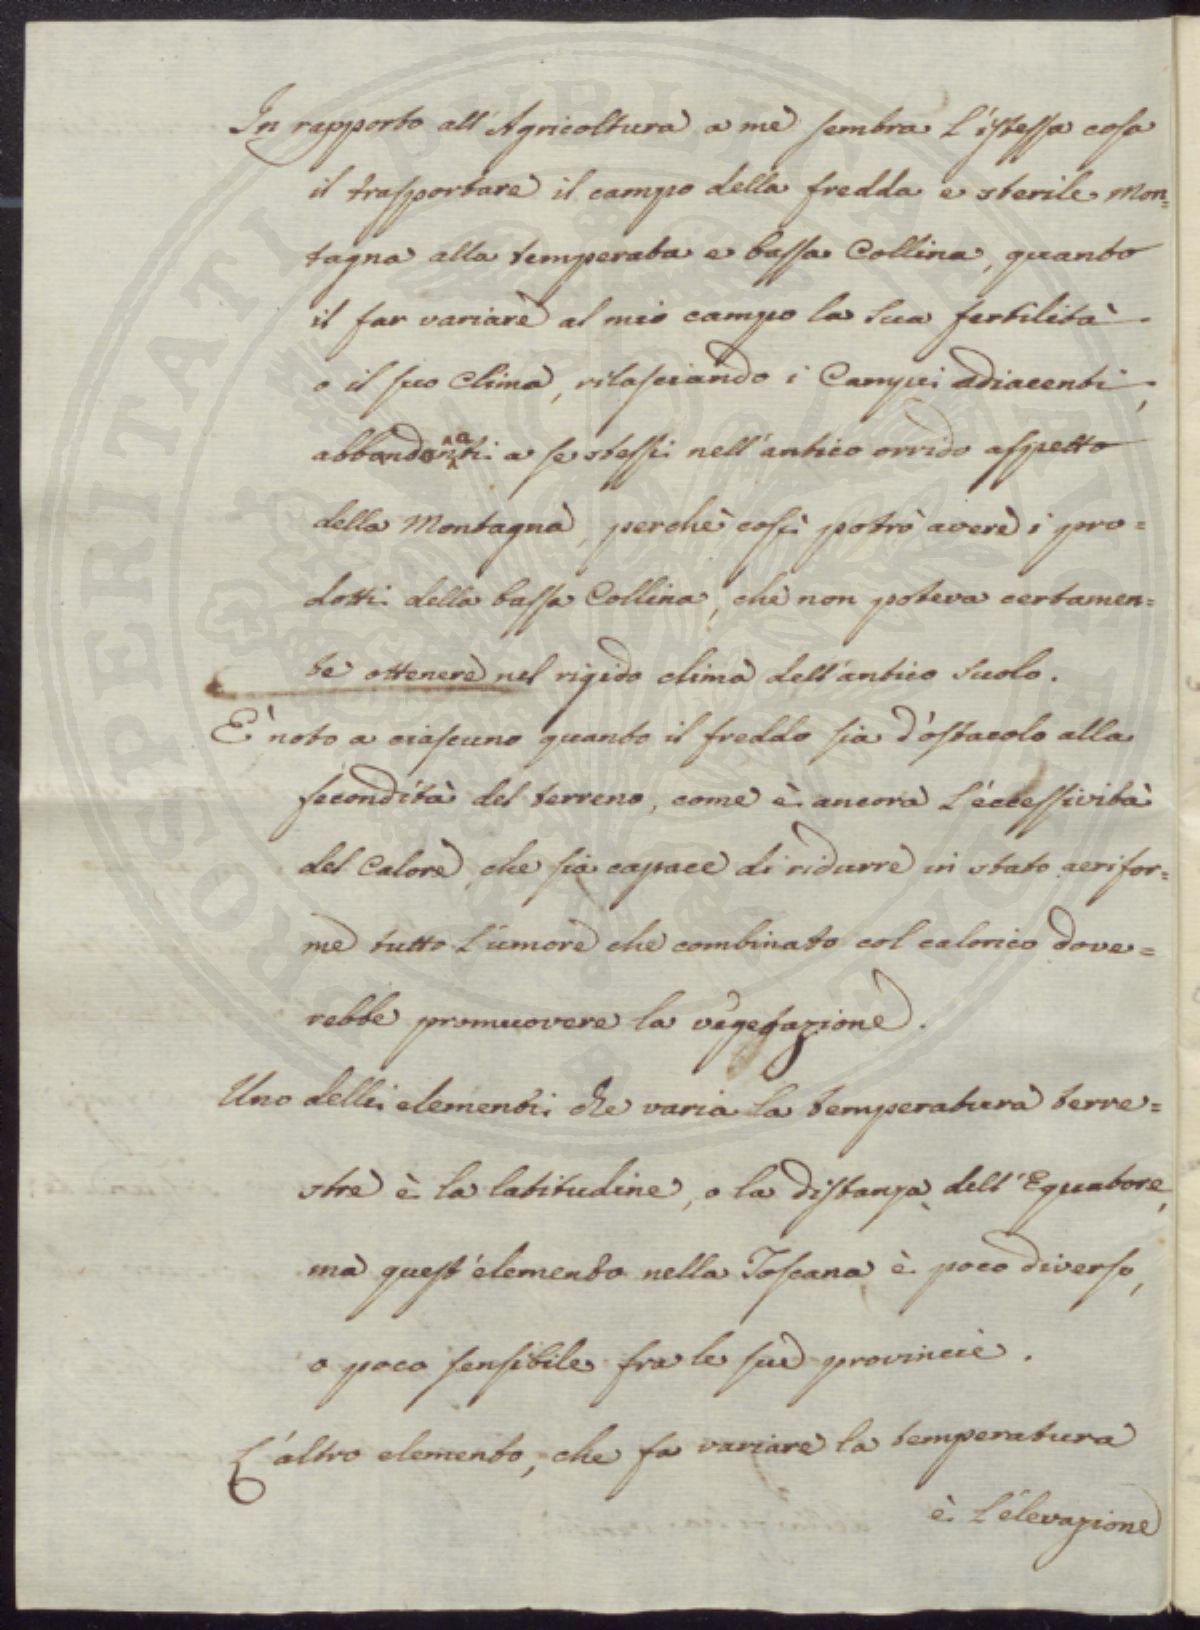 In rapporto all'Agricoltura a me sembra l'istessa cosa
il trasportare il campo della fredda e sterile Mon=
tagna alla temperata e bassa Collina, quanto
il far variare al mio campo la sua fertilità
o il suo Clima, rilasciando i Campi adiacenti,
abbandonati a se stessi nell'antico orrido aspetto
della Montagna, perchè così potrò avere i pro=
dotti della bassa Collina, che non poteva certamen=
te ottenere nel rigido clima dell'antico suolo.
E' noto a ciascuno quanto il freddo sia d'ostacolo alla
fecondità del terreno, come è ancora l'eccessività
del Calore, che sia capace di ridurre in stato aerifor=
me tutto l'umore che combinato col calorico dove=
rebbe promuovere la vegetazione.
Uno delli elementi che varia la temperatura terre=
stre è la latitudine, o la distanza dell'Equatore,
ma quest'elemento nella Toscana è poco diverso,
o poco sensibile fra le sue provincie.
L'altro elemento, che fa variare la temperatura
è l'elevazione
PROSPERITATI PUBLICAE AUGENDAE